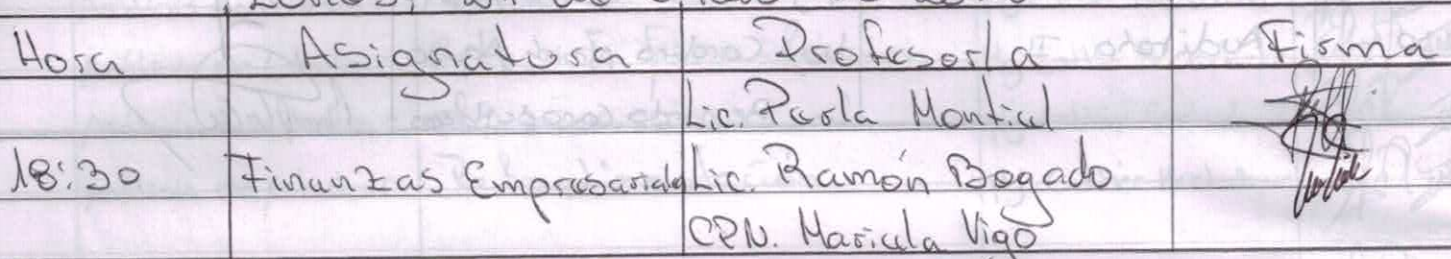 Hora Asignatura Profesor/a Firma
Lic. Perla Montiel
18:30 Finanzas Empresariales Lic. Ramón Bogado
CPN. Mariela Vigo